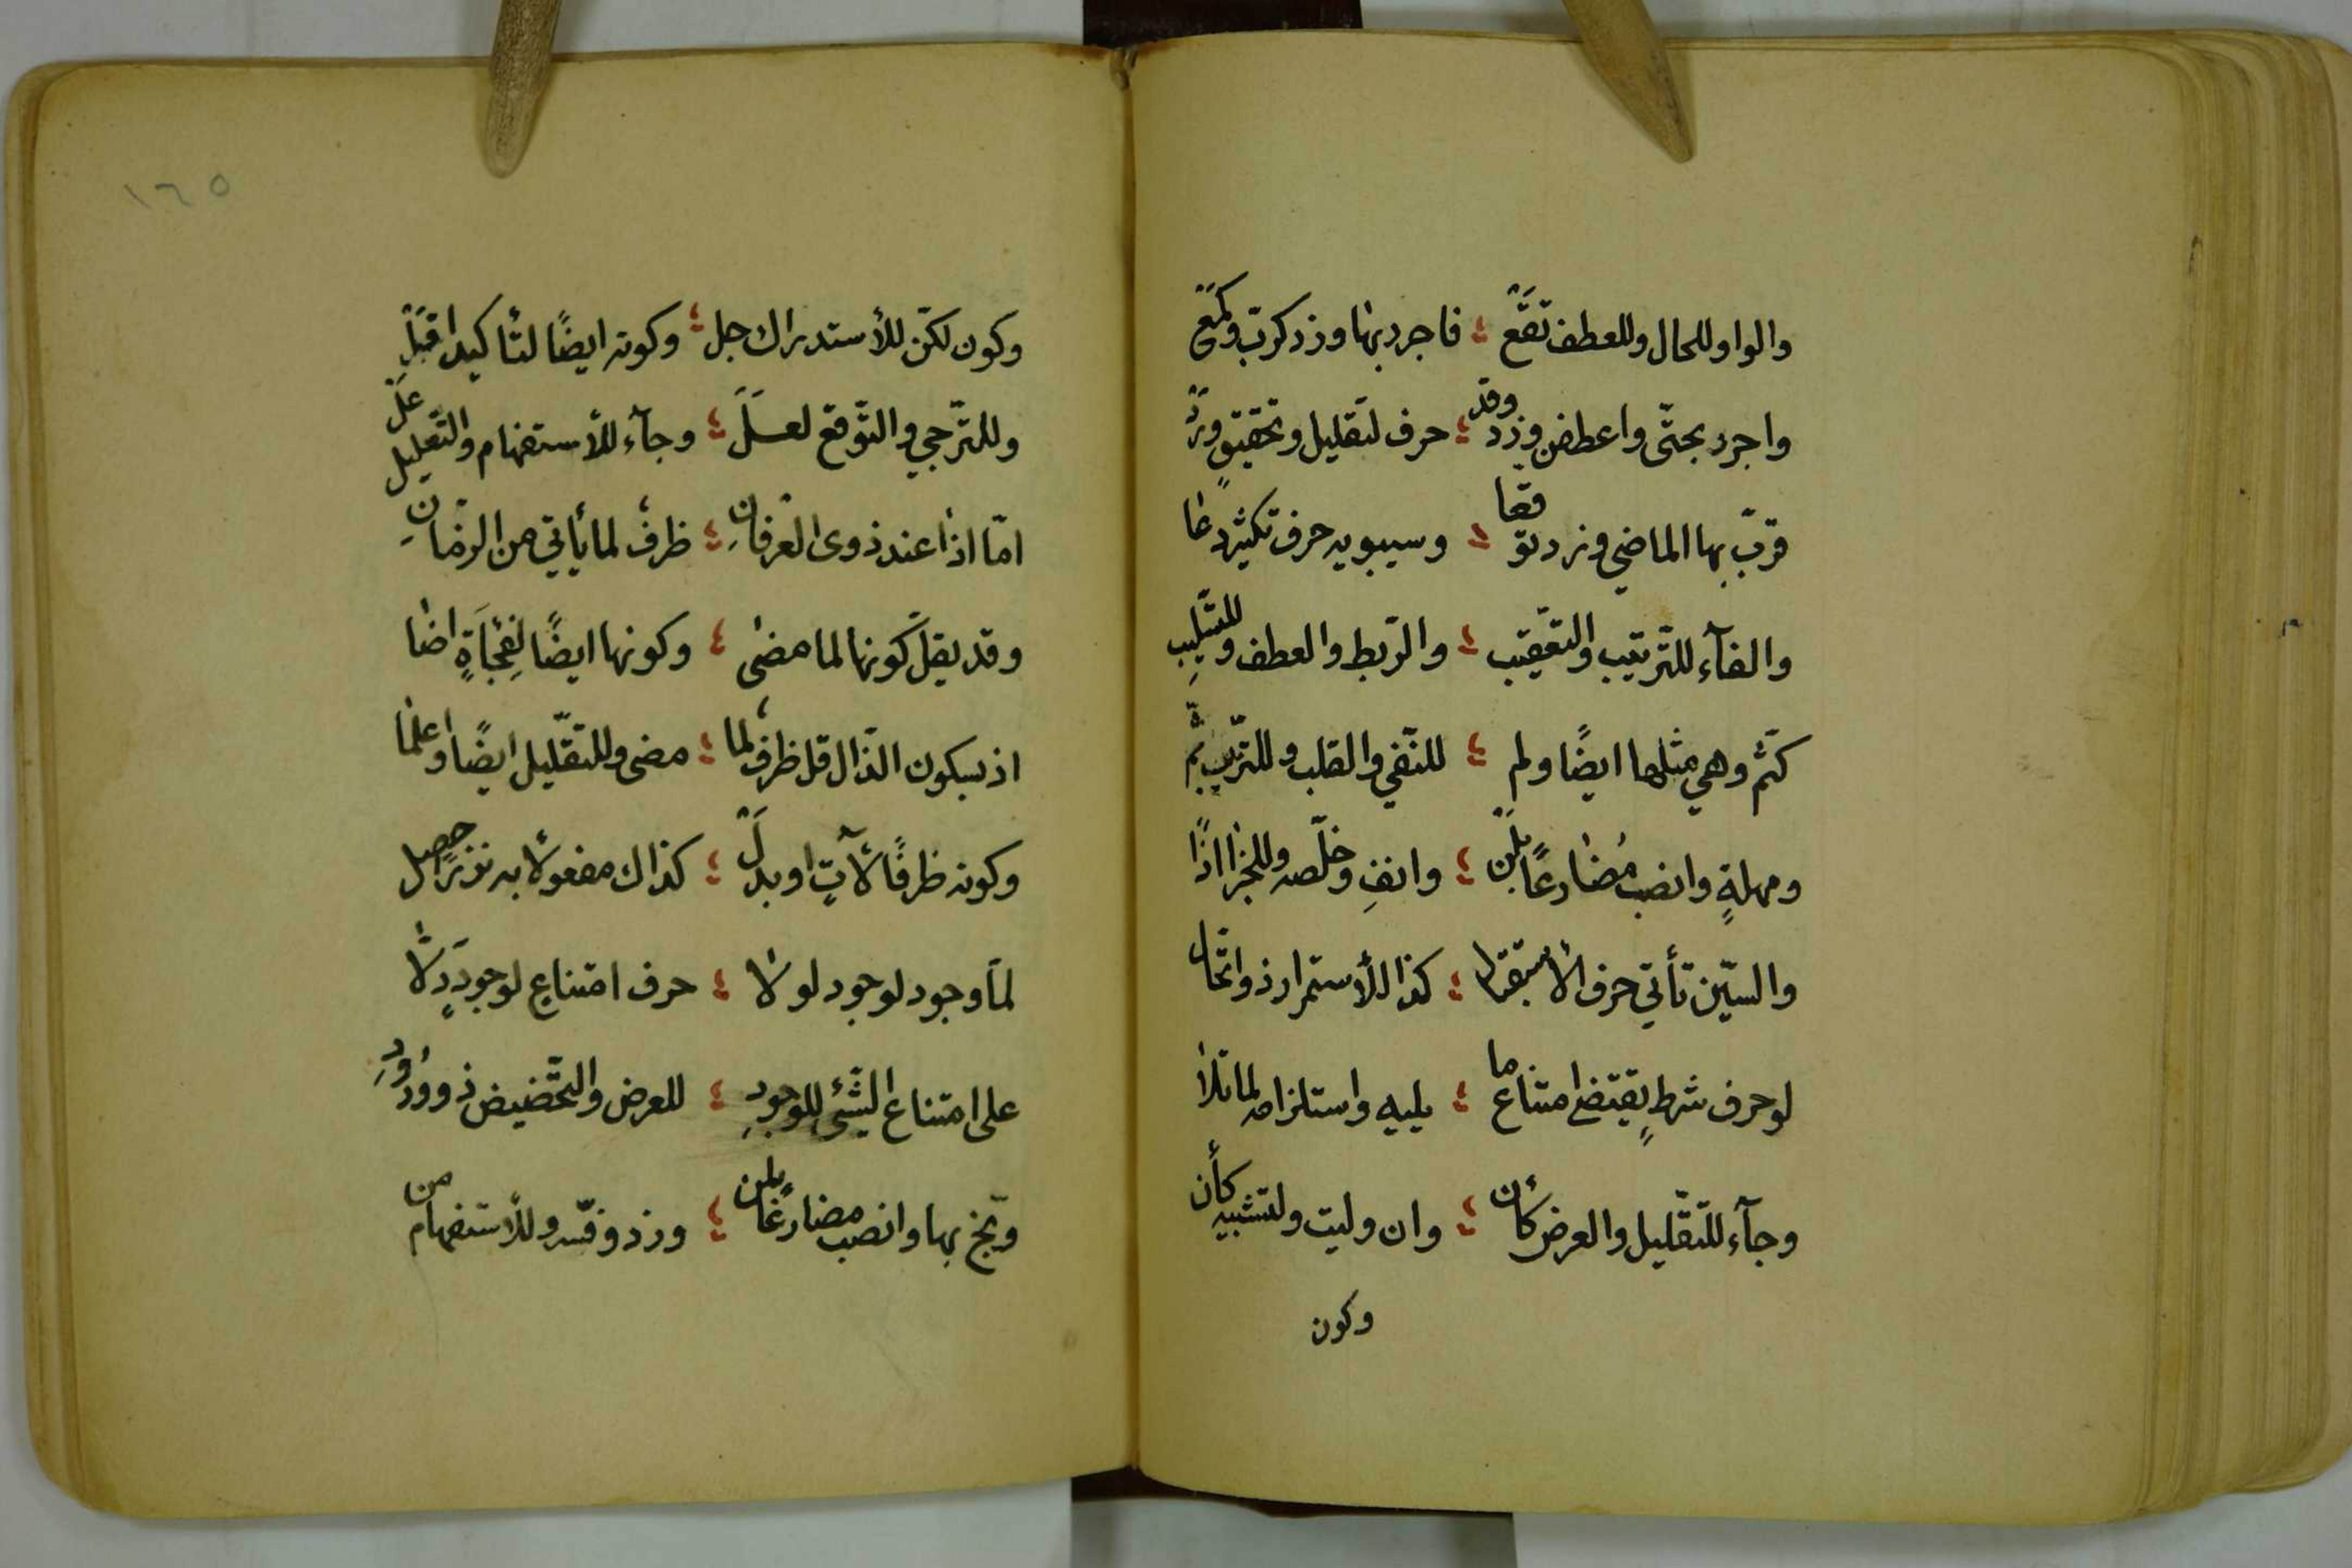 والواو للحال وللعطف تقع ؛ فاجرد بها وزد كرب وكمع
واجرر بحتّى واعطفن وزد وقد ؛ حرف لتقليل وتحقيق ورد
قرّب بها الماضي وزد توقعا ؛ وسيبويه حرف تكثير دعا
والفآء للتّرتيب والتّعقيب ؛ والرّبط والعطف
كثمّ وهي مثلها ايضًا ولم ؛ للنّفي والقلب وللترتيب ثمّ
ومهلةٍ وانصب مُضارعًا بلن ؛ وانفِ وخلّصه وللجزا اذًا
والسّين تأتي حرف الاستقبال ؛ كذا للأستمرار ذو اتّحال
لو حرف شرطٍ يقتضى امتناع ما ؛ يليه واستلزامه لما تلا
وجآء للتّقليل والعرض كأن ؛ وان وليت ولتشبيه كأن
وكون
١٦٥
وكون لكنّ للأستدراك جل ؛ وكونه ايضًا لتأكيد اقبل
وللتّرجي والتّوقع لعلّ ؛ وجآء للأستفهام والتّعليل علّ
امّا اذا عند ذوى العرفانِ ؛ ظرفٌ لما يأتي من الزمانِ
وقد يقلّ كونها لما مضى ؛ وكونها ايضًا لفِجَأةٍ اضا
اذ بسكون الذّال قل ظرفٌ لما ؛ مضى وللتّقليل ايضًا واعلما
وكونه ظرفًا لآتٍ او بدل ؛ كذاك مفعولا به نزرًا حصل
لمّا وجود لوجود لولا ؛ حرف امتناعٍ لوجودٍ دلّا
على امتناع الشّئ للوجودِ ؛ للعرض والتّحضيض ذو ورُودِ
وبّخ بها وانصب مضارعًا بلن ؛ وزد وفسّر وللأستفهام من